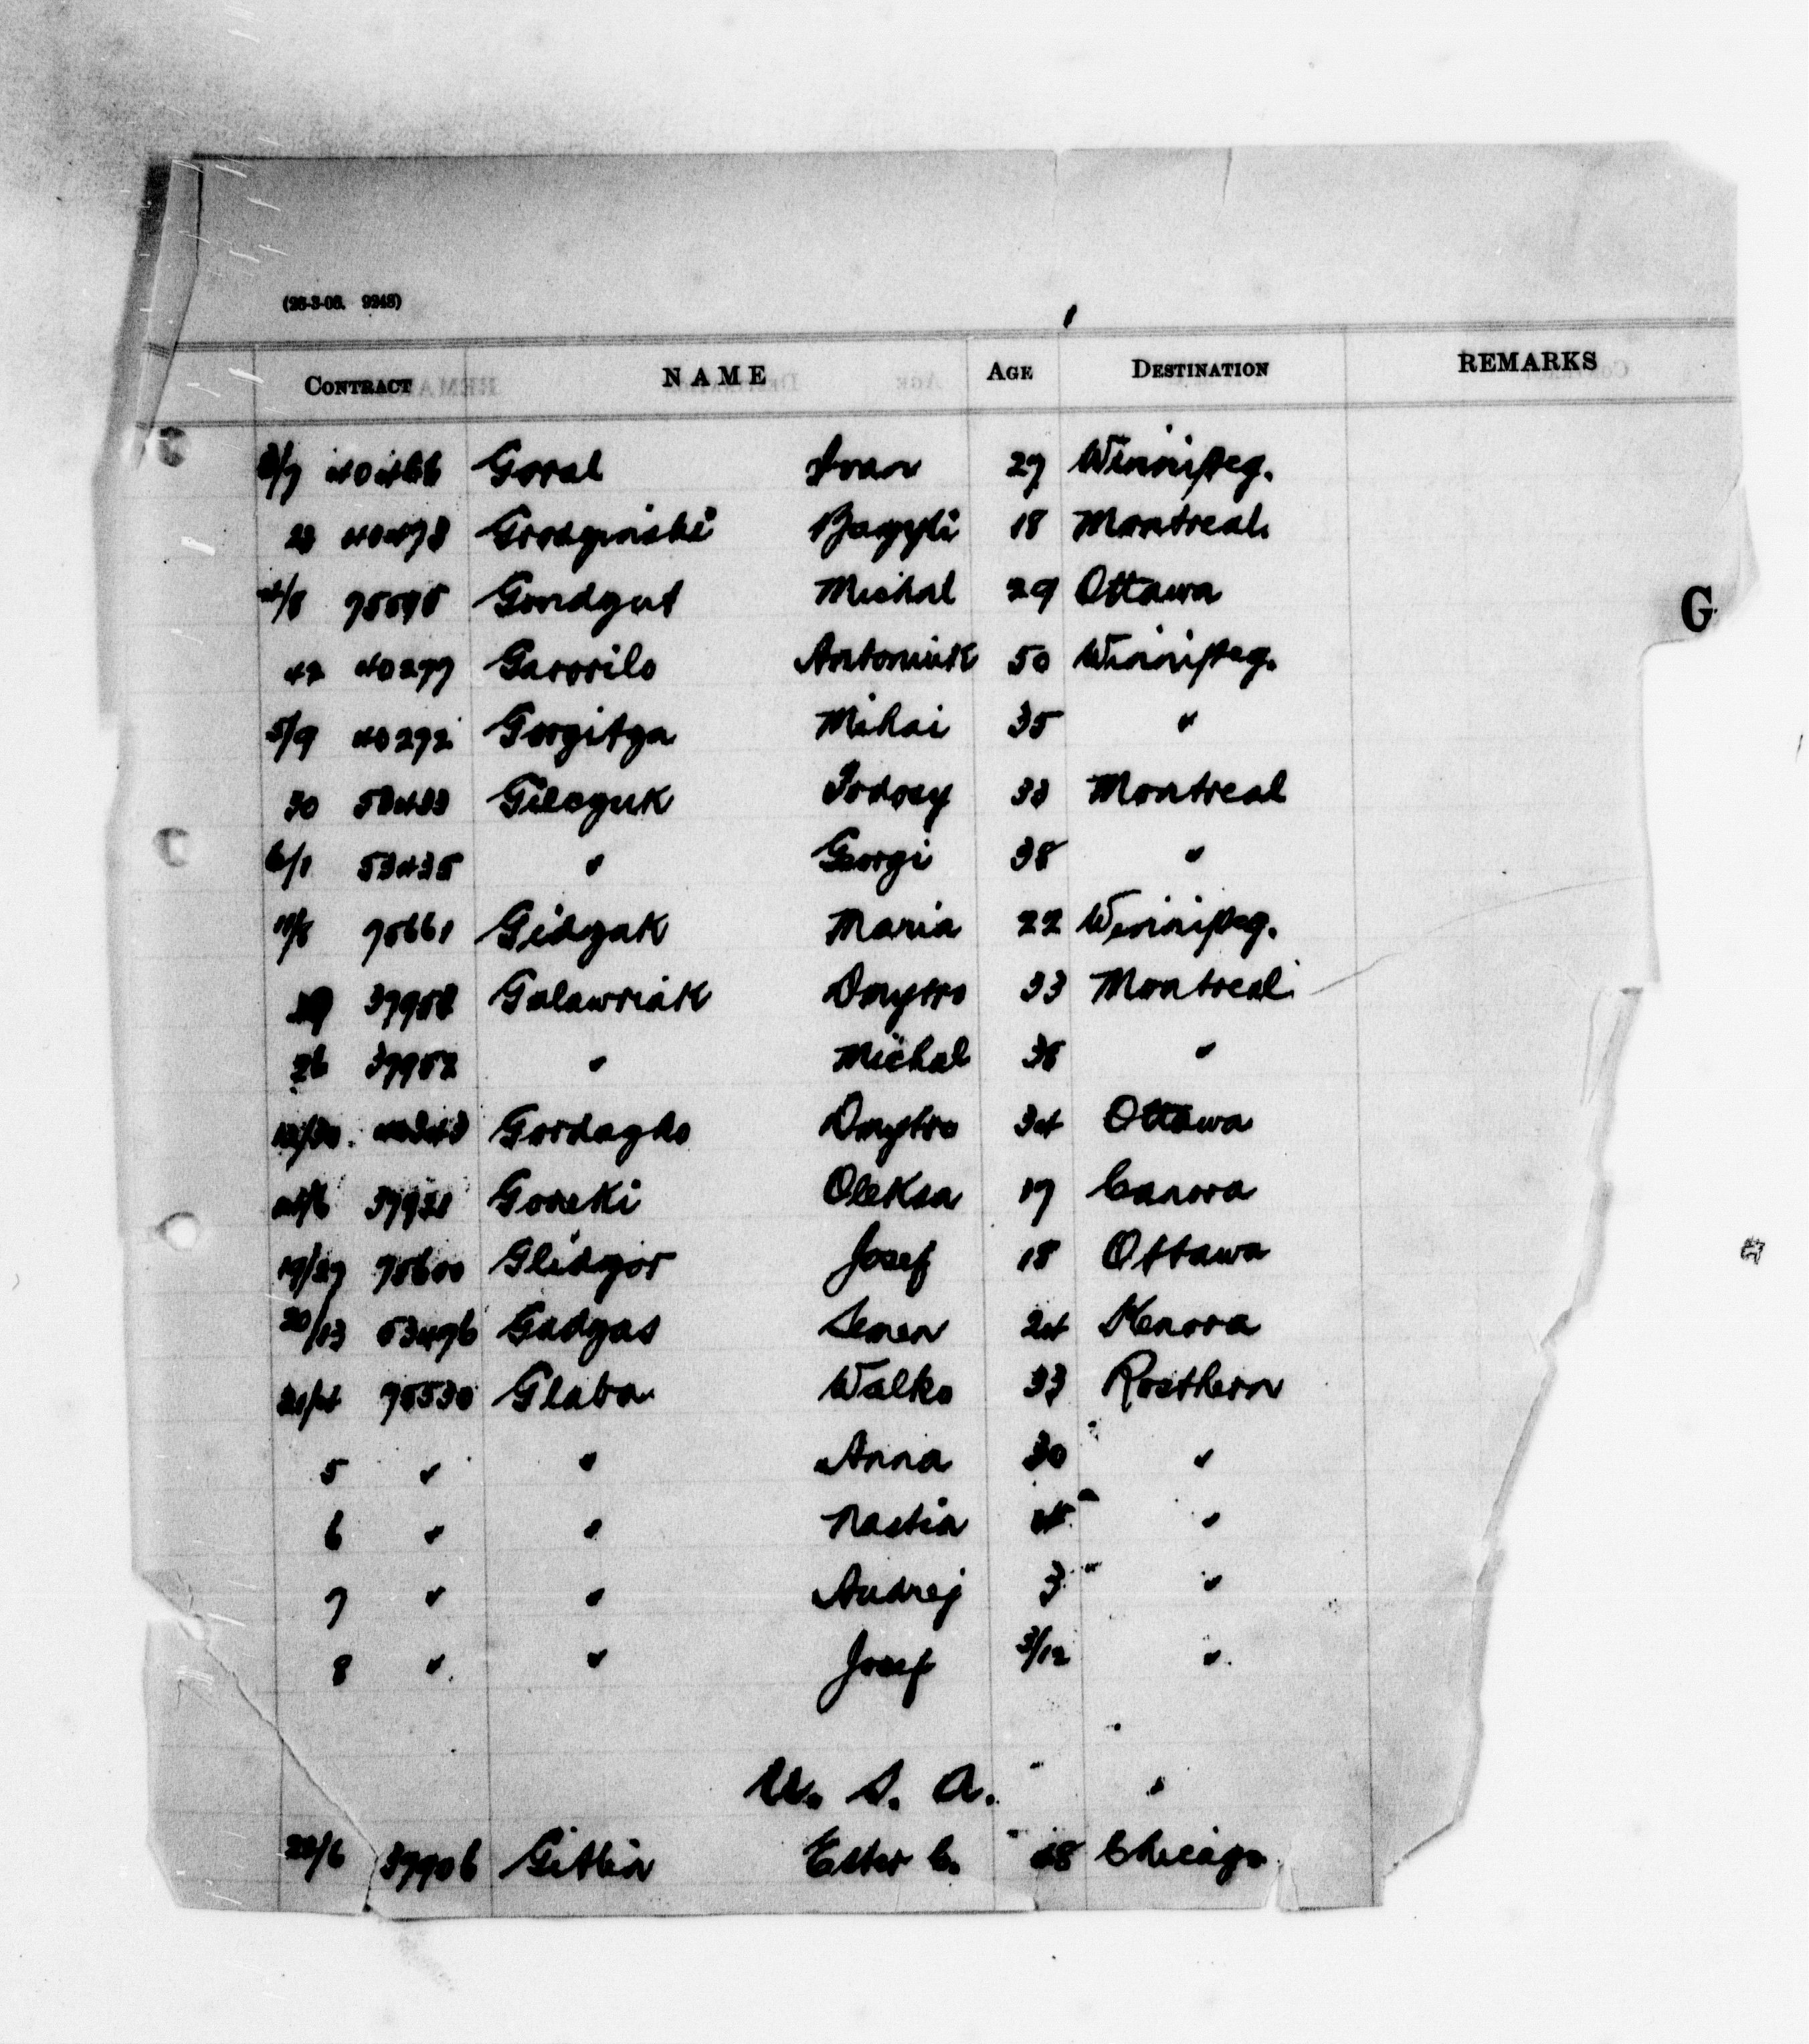 (26-3-08. 9248)
CONTRACT NAME AGE DESTINATION REMARKS
3/7 40466 Goral Ivan 27 Winnipeg.
40478 18 Montreal.
75595 Gondzut Michal 29 Ottawa
42 40277 Gavorilo Antoniuk 50 Winnipeg.
G
5/9 40272 Gorgitza Mihai 35 "
30 53433 Gilczuk 33 Montreal
6/1 53435 " Georgi 38 "
11/8 75661 Gidzak Maria 22 Winnipeg.
37958 Galawriak Dmytro 33 Montreal
26 37952 " Michal 36 "
Dmytro 34 Ottawa
37931 Goreki Oleksa 17 Canora
19/27 75600 Glidzor Josef 18 Ottawa
20/13 53496 Gadzas Semen 24 Kenora
21/4 75530 Glaba Walko 33 Rosthern
5 " " Anna 30 "
6 " " Nastia "
7 " " Andrej 3 "
8 " " Josef 3/12 "
U. S. A.
22/6 37906 Gitlin Ester C. 18 Chicago